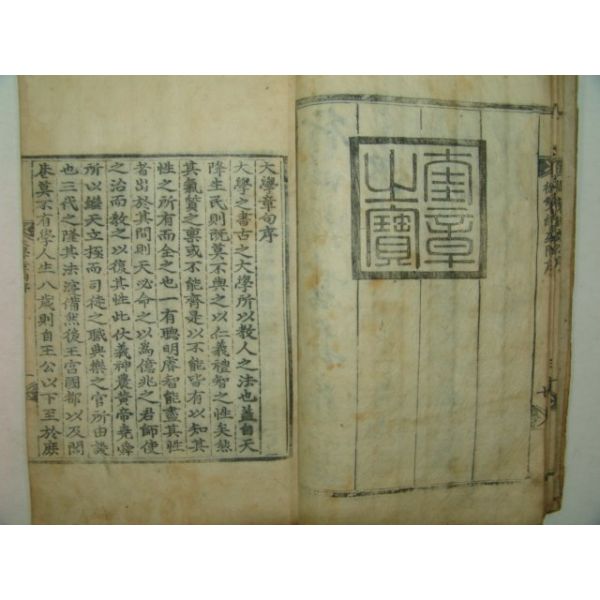 奎章
之寶
大學章句序
大學之書古之大學所以教人之法也蓋自天
降生民則既莫不與之以仁義禮智之性矣然
其氣質之稟或不能齊是以不能皆有以知其
性之所有而全之也一有聰明睿智能盡其性
者出於其間則天必命之以為億兆之君師使
之治而教之以復其性此伏羲神農黃帝堯舜
所以繼天立極而司徒之職典樂之官所由設
也三代之隆其法寖備然後王宮國都以及閭
巷莫不有學人生八歲則自王公以下至於庶